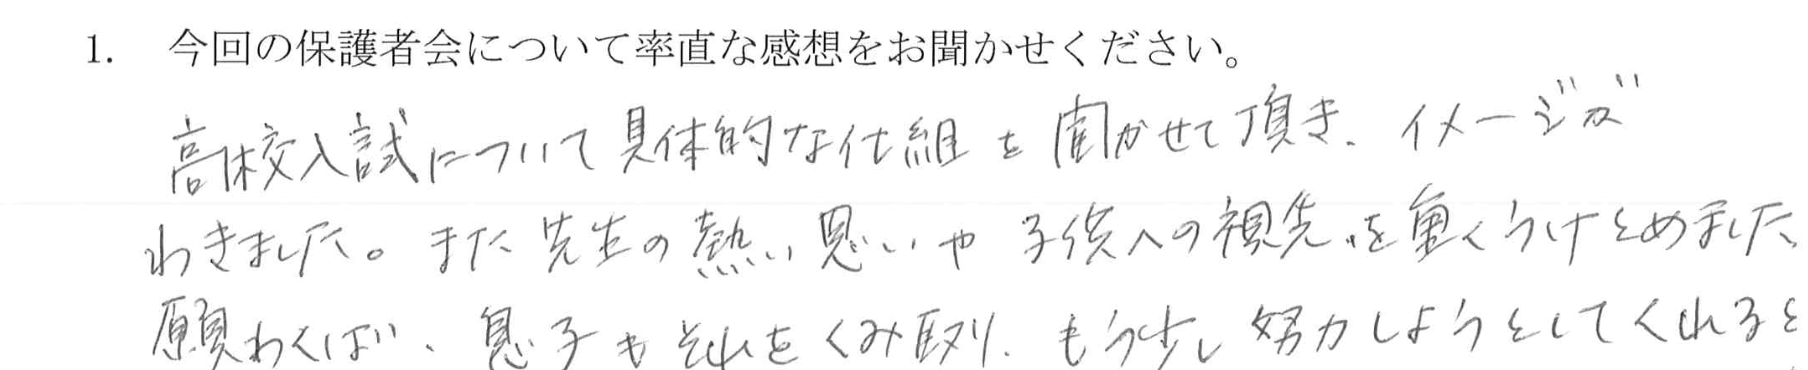 1. 今回の保護者会について率直な感想をお聞かせください。
高校入試について具体的な仕組を聞かせて頂き、イメージが
わきました。また先生の熱い思いや子供への視先を重くうけとめました
願わくば、息子もそれをくみ取り、もう少し努力しようとしてくれると